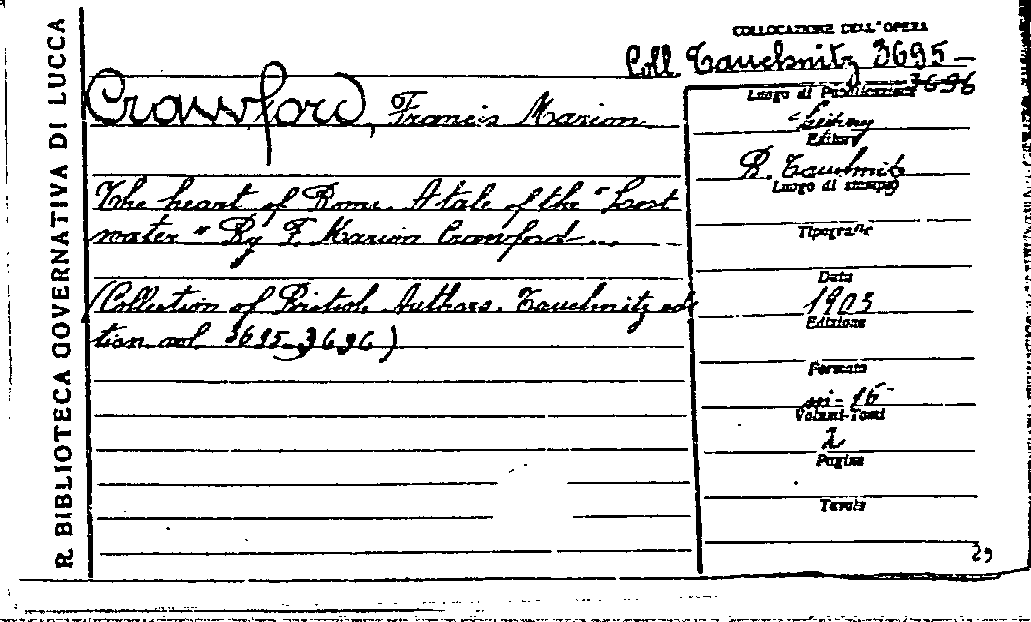 R. BIBLIOTECA GOVERNATIVA DI LUCCA
COLLOCAZIONE DELL'OPERA
Coll. Tauchnitz 3695-
3696
Crawford, Francis Marion
The heart of Rome. A tale of the "Lost
water" By F. Marion Crawford...
(Collection of British Authors. Tauchnitz edi
tion vol. 3695-3696)
Luogo di Pubblicazione
Editore
B. Tauchnitz
Luogo di stampa
Tipografie
Data
1903
Edizione
Formato
in-16
Volumi-Tomi
2
Pagine
Tavole
29